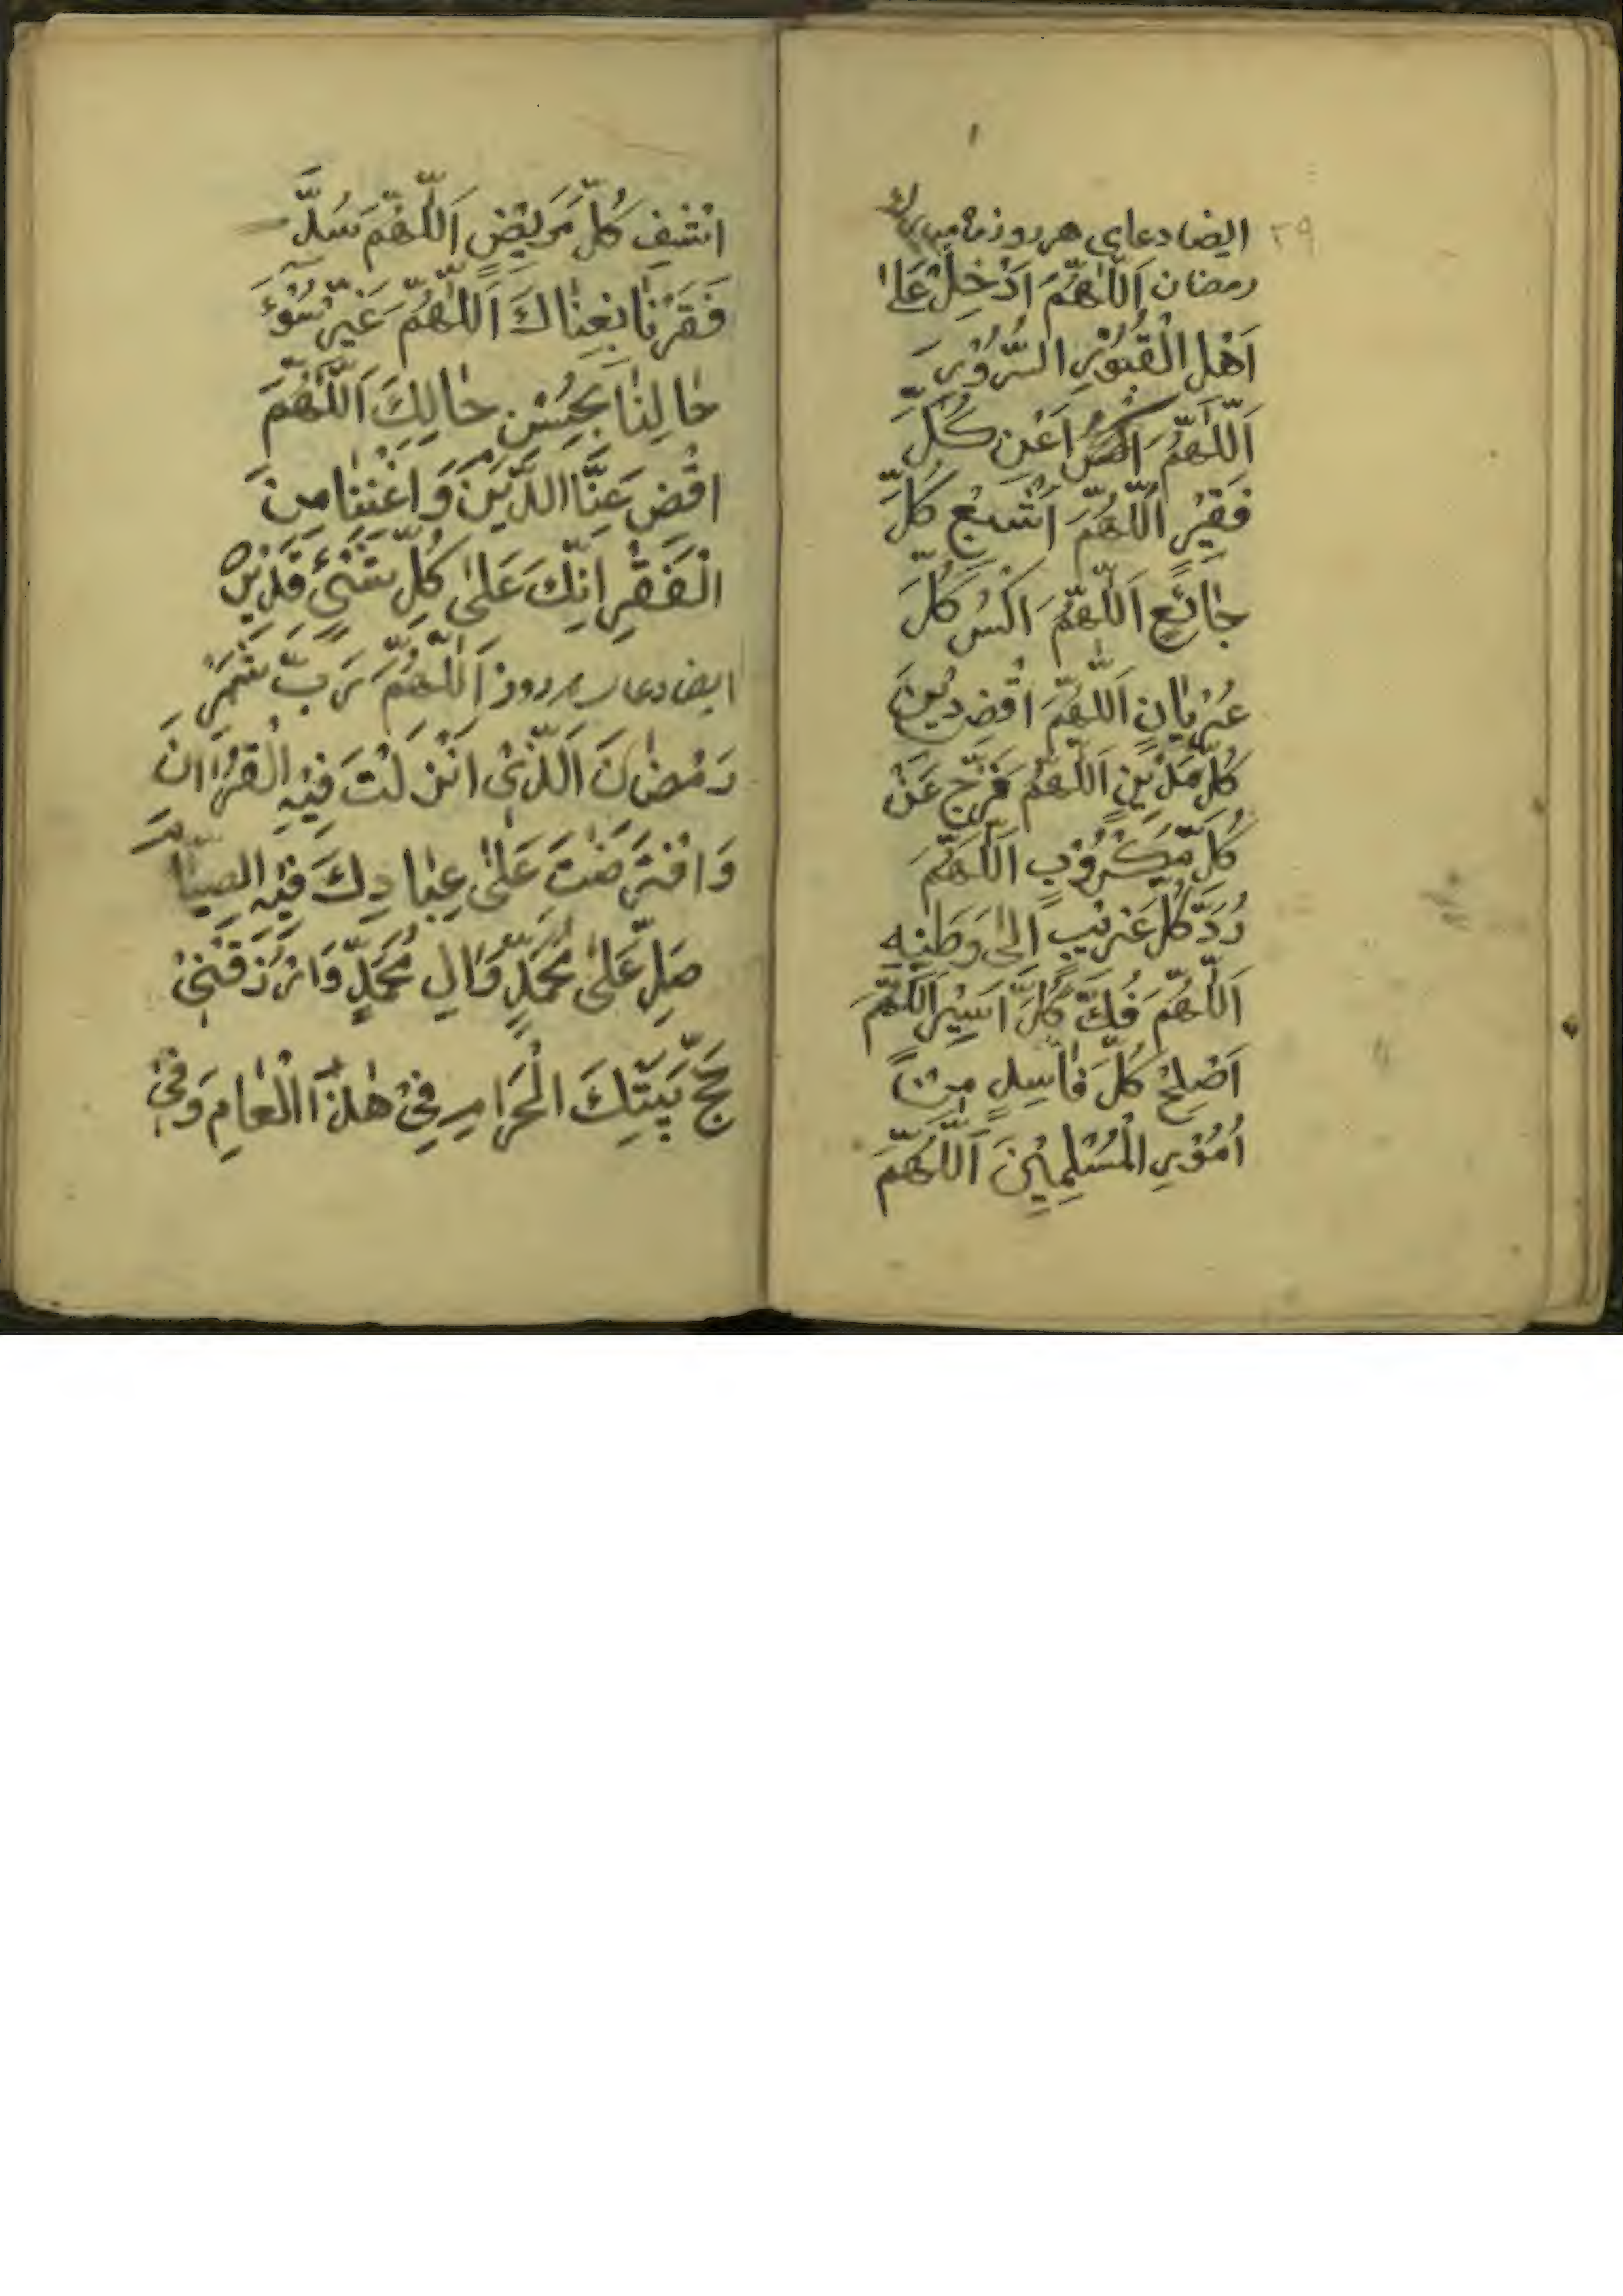 ١
٣٩
ایضا دعای هر روز ماه مبارک
رمضان اَللّٰهُمَّ اَدْخِلْ عَلیٰ
اَهْلِ الْقُبُوْرِ السُّرُوْرَ
اَللّٰهُمَّ اَعْنِ كُلَّ
فَقِیْرٍ اَللّٰهُمَّ اَشْبِعْ كُلَّ
جٰائِعٍ اَللّٰهُمَّ اكْسُ كُلَّ
عُرْیٰانٍ اَللّٰهُمَّ اقْضِ دَیْنَ
كُلِّ مَدْیَنٍ اَللّٰهُمَّ فَرِّجْ عَنْ
كُلِّ مَكْرُوْبٍ اَللّٰهُمَّ
رُدَّ كُلَّ غَرِیْبٍ اِلیٰ وَطَنِهِ
اَللّٰهُمَّ فُكَّ كُلَّ اَسِیْرٍ اَللّٰهُمَّ
اَصْلِحْ كُلَّ فٰاسِدٍ مِنْ
اُمُوْرِ الْمُسْلِمِیْنَ اَللّٰهُمَّ
اشْفِ كُلَّ مَرِیْضٍ اَللّٰهُمَّ سُدَّ
فَقَرْنٰا بِغِنٰاكَ اَللّٰهُمَّ غَیِّرْ سُوْءَ
حٰالِنٰا بِحُسْنِ حٰالِكَ اَللّٰهُمَّ
اقْضِ عَنَّا الدَّیْنَ وَاَغْنِنٰا مِنَ
الْفَقْرِ اِنَّكَ عَلیٰ كُلِّ شَیْءٍ قَدِیْرٌ
ایضا دعای هر روز اَللّٰهُمَّ رَبَّ شَهْرِ
رَمْضٰانَ اَلَّذِیْ اَنْزَلْتَ فِیْهِ الْقُرْاٰنَ
وَافْتَرَضْتَ عَلیٰ عِبٰادِكَ فِیْهِ الصِّیٰامَ
صَلِّ عَلیٰ مُحَمَّدٍ وَاٰلِ مُحَمَّدٍ وَارْزُقْنِیْ
حَجَّ بَیْتِكَ الْحَرَامِ فِیْ هٰذَا الْعٰامِ وَفِیْ